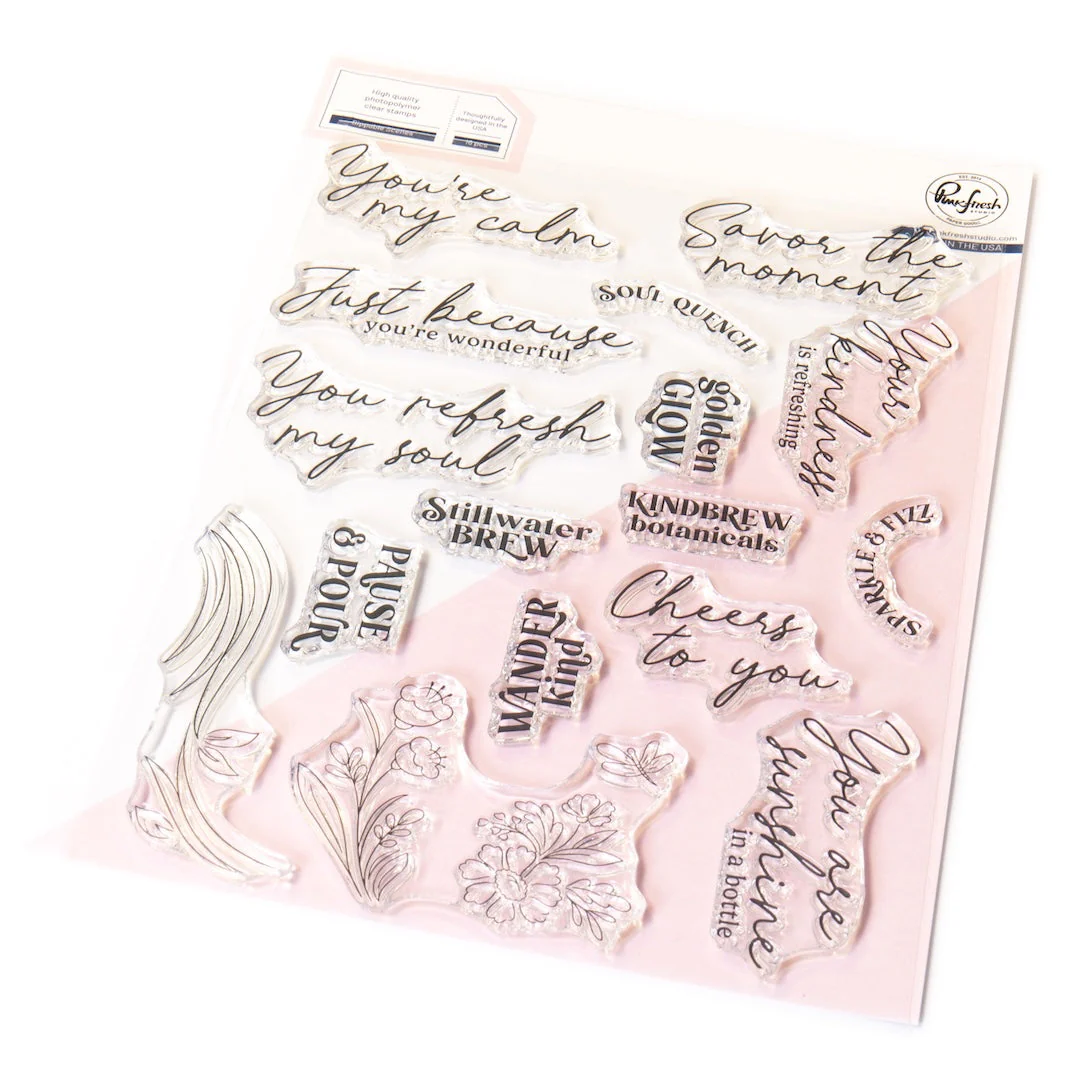 High quality
photopolymer
clear stamps
Sippable Scenes
Thoughtfully
designed in the
USA
16 pcs
EST. 2014
Pinkfresh
STUDIO
pinkfreshstudio.com
IN THE USA
You're
my calm
Savor the
moment
Just because
you're wonderful
SOUL QUENCH
Your
kindness
is refreshing
You refresh
my soul
golden
GLOW
Stillwater
BREW
KINDBREW
botanicals
SPARKLE & FIZZ
PAUSE
& POUR
WANDER
kind
Cheers
to you
You are
sunshine
in a bottle